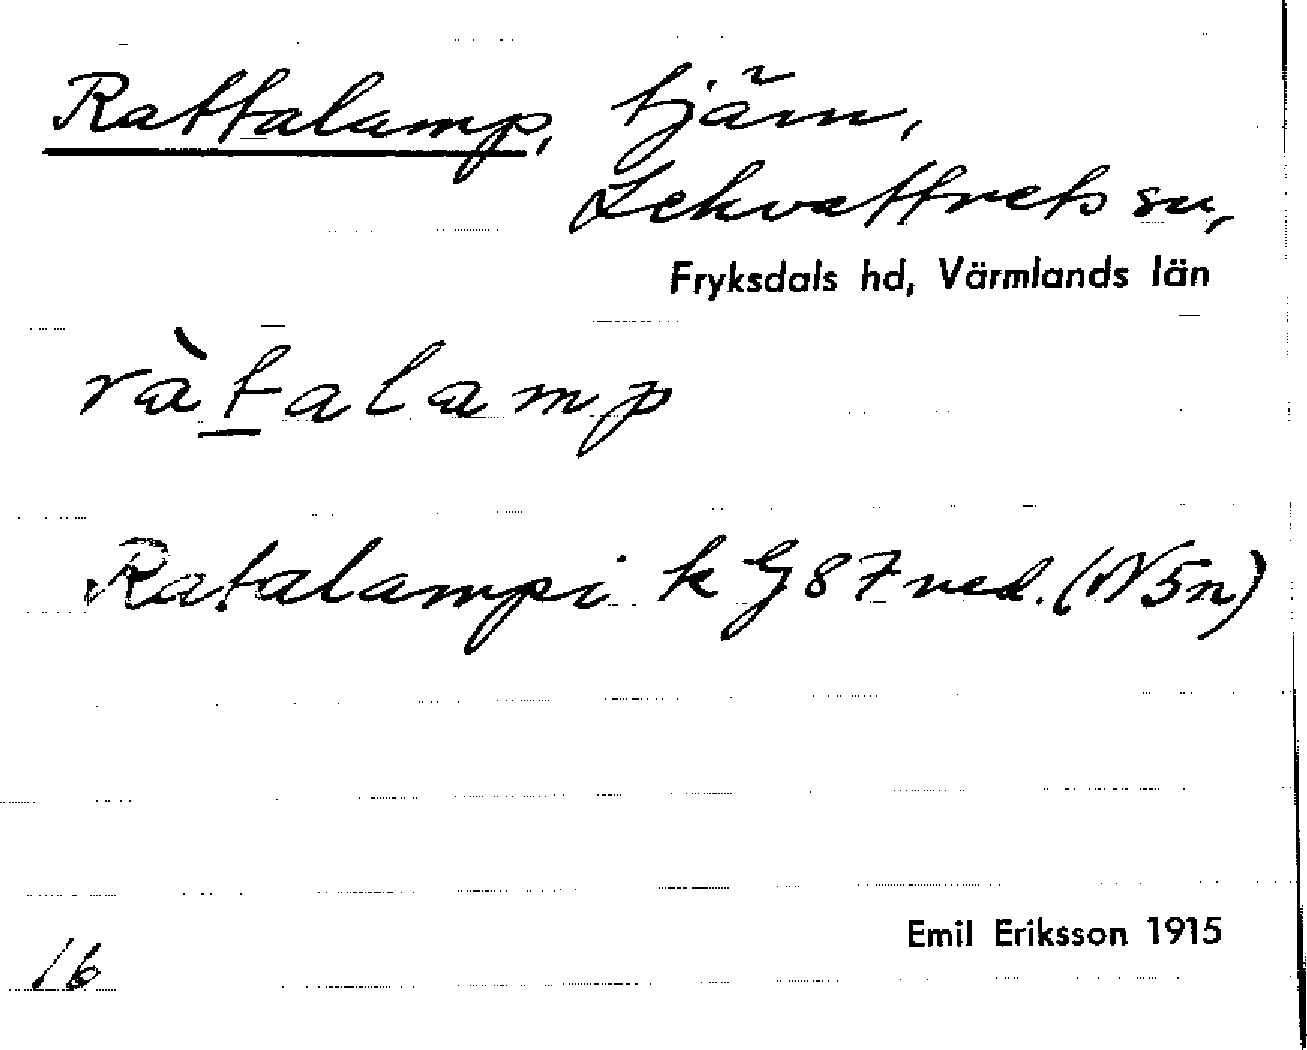 Rattalamp, tjärn,
Lekvattnets sn,
Fryksdals hd, Värmlands län
ràt̲alamp
Ratalampi k G 87 ned. (N5n)
Emil Eriksson 1915
16